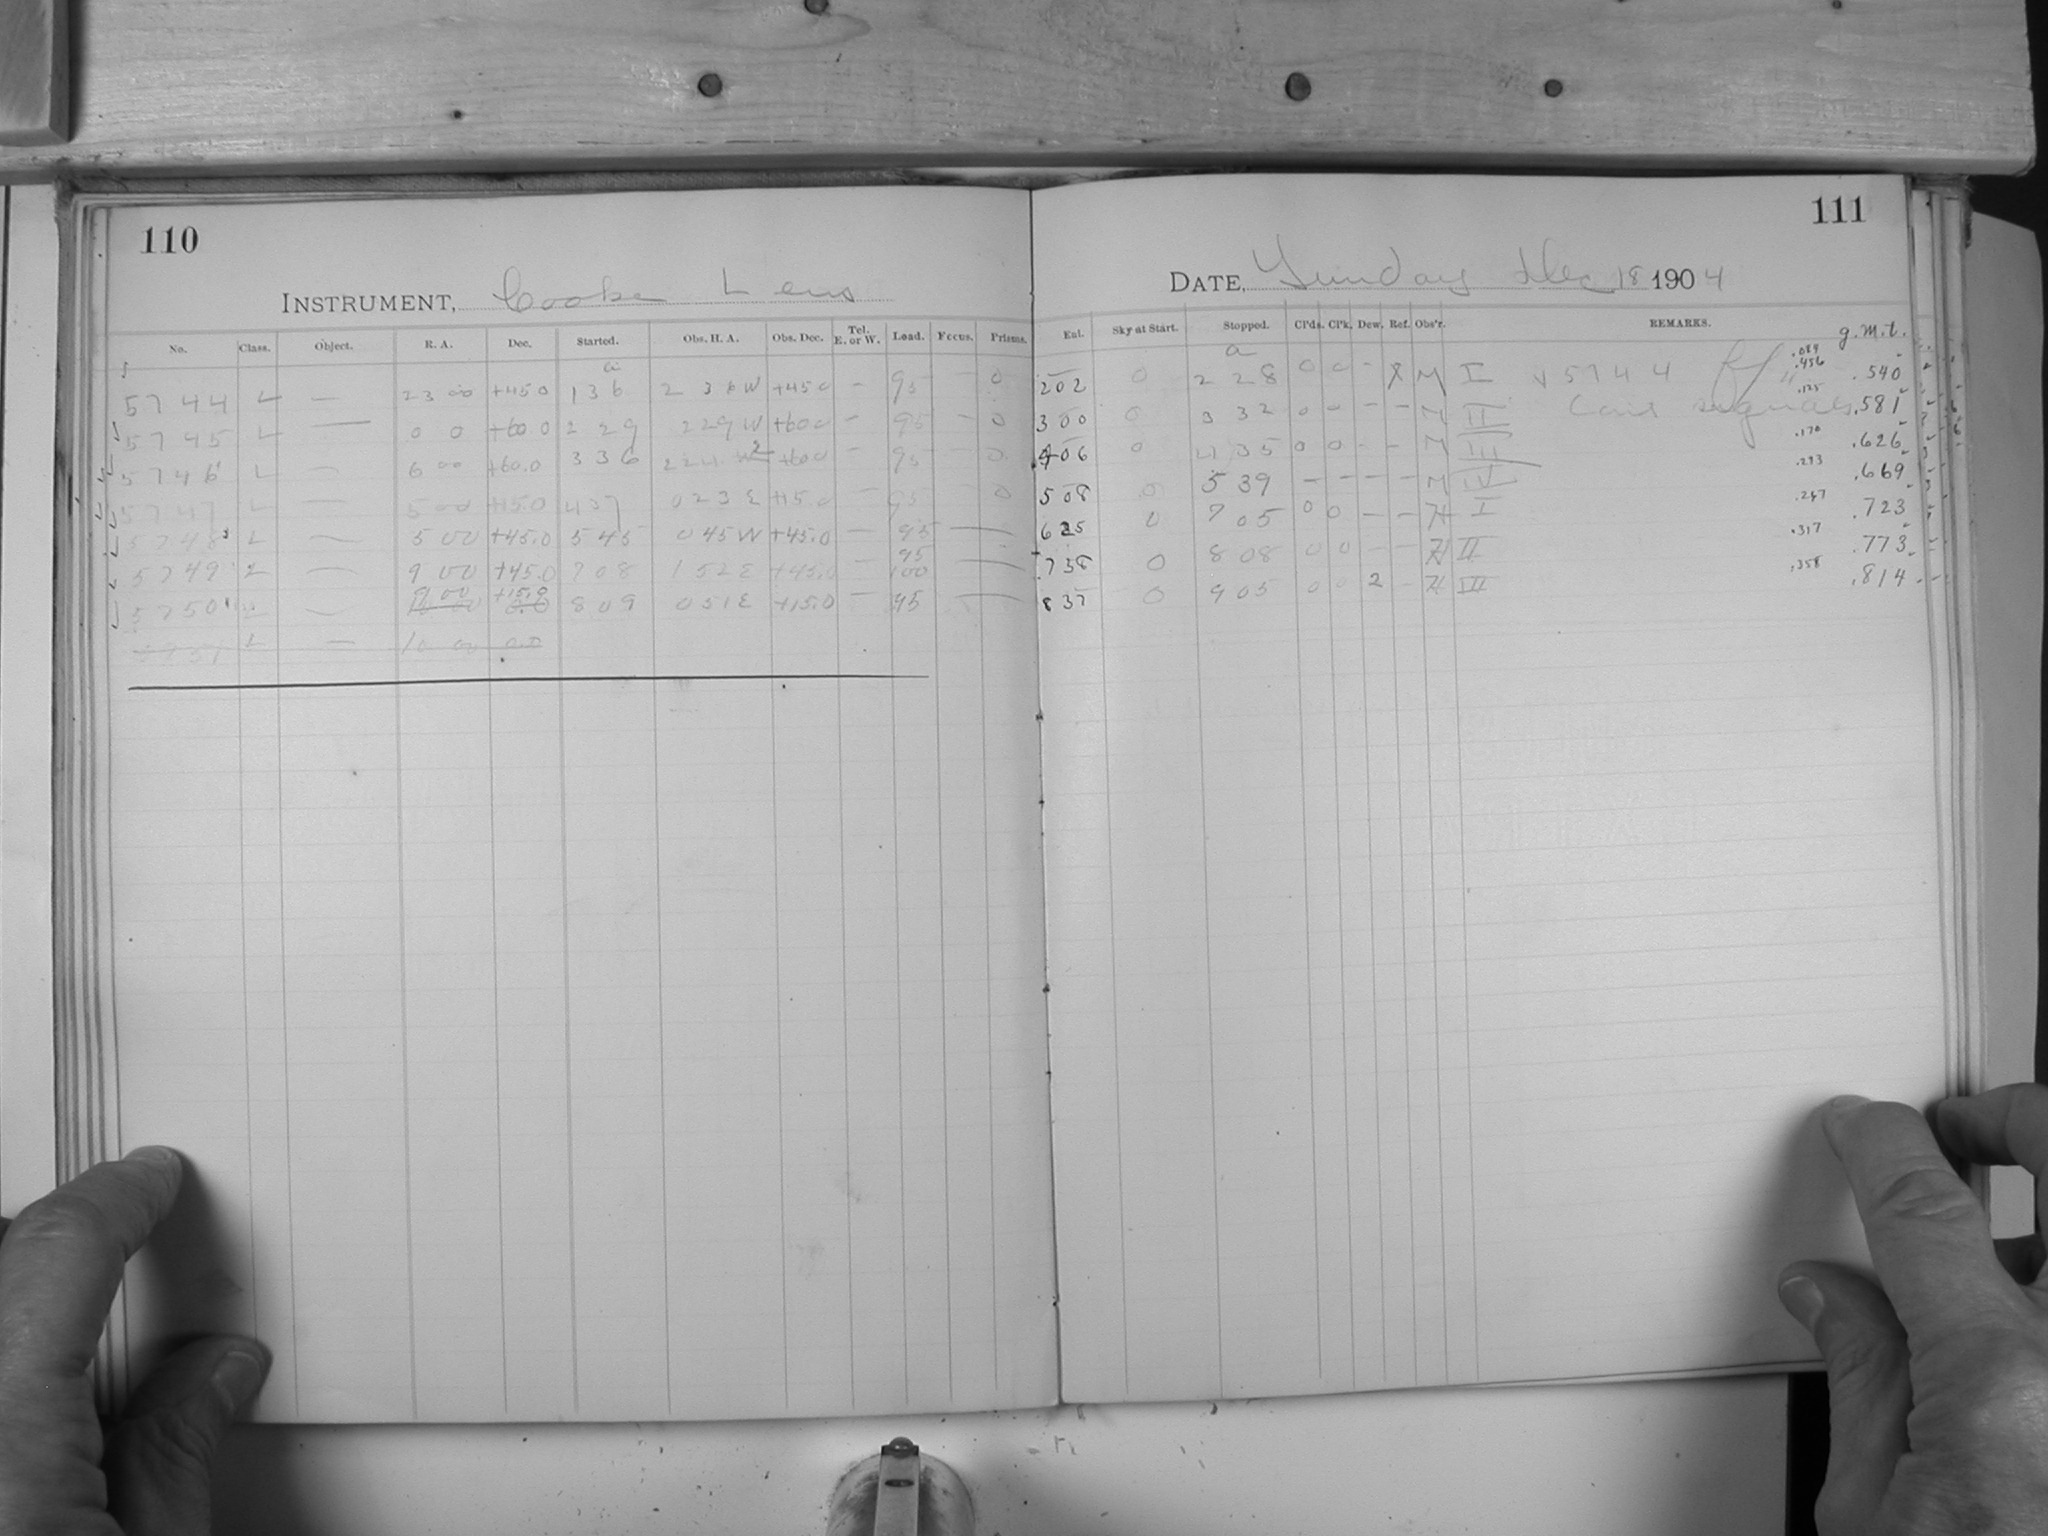 110
INSTRUMENT, Cooke Lens
No. Class. Object. R. A. Dec. Started. Obs. H. A. Obs. Dec. Tel. E. or W. Load. Focus. Prisms.
a
5744 L — 23 00 +45.0 1 36 2 36 W +45.0 — 95 — 0
5745 L — 0 0 +60.0 2 29 2 29 W +60.0 — 95 — 0
5746 L — 6 00 +60.0 3 36 +60.0 — 95 — 0
5747 L — 5 00 +15.0 4 37 0 23 E +15.0 — 95 — 0
5748 L — 5 00 +45.0 5 45 0 45 W +45.0 — 95 —
5749 L — 9 00 +45.0 7 08 1 52 E +45.0 — 95 100 —
5750 L — 9 00 +15.0 8 09 0 51 E +15.0 — 95 —
5751 L — 10 00 0.0
111
DATE, Sunday Dec 18 1904
Ent. Sky at Start. Stopped. Cl'ds. Cl'k. Dew. Ref. Obs'r. REMARKS. g.m.t.
a
2 02 0 2 28 0 0 - M I 5744 .540
3 00 0 3 32 0 - - - M II signals .581
4 06 0 4 35 0 0 - - M III .170 .626
5 08 0 5 39 - - - - M IV .669
6 25 0 7 05 0 0 - - H I .267 .723
7 38 0 8 08 0 0 - - H II .317 .773
8 37 0 9 05 0 0 2 - H III .358 .814